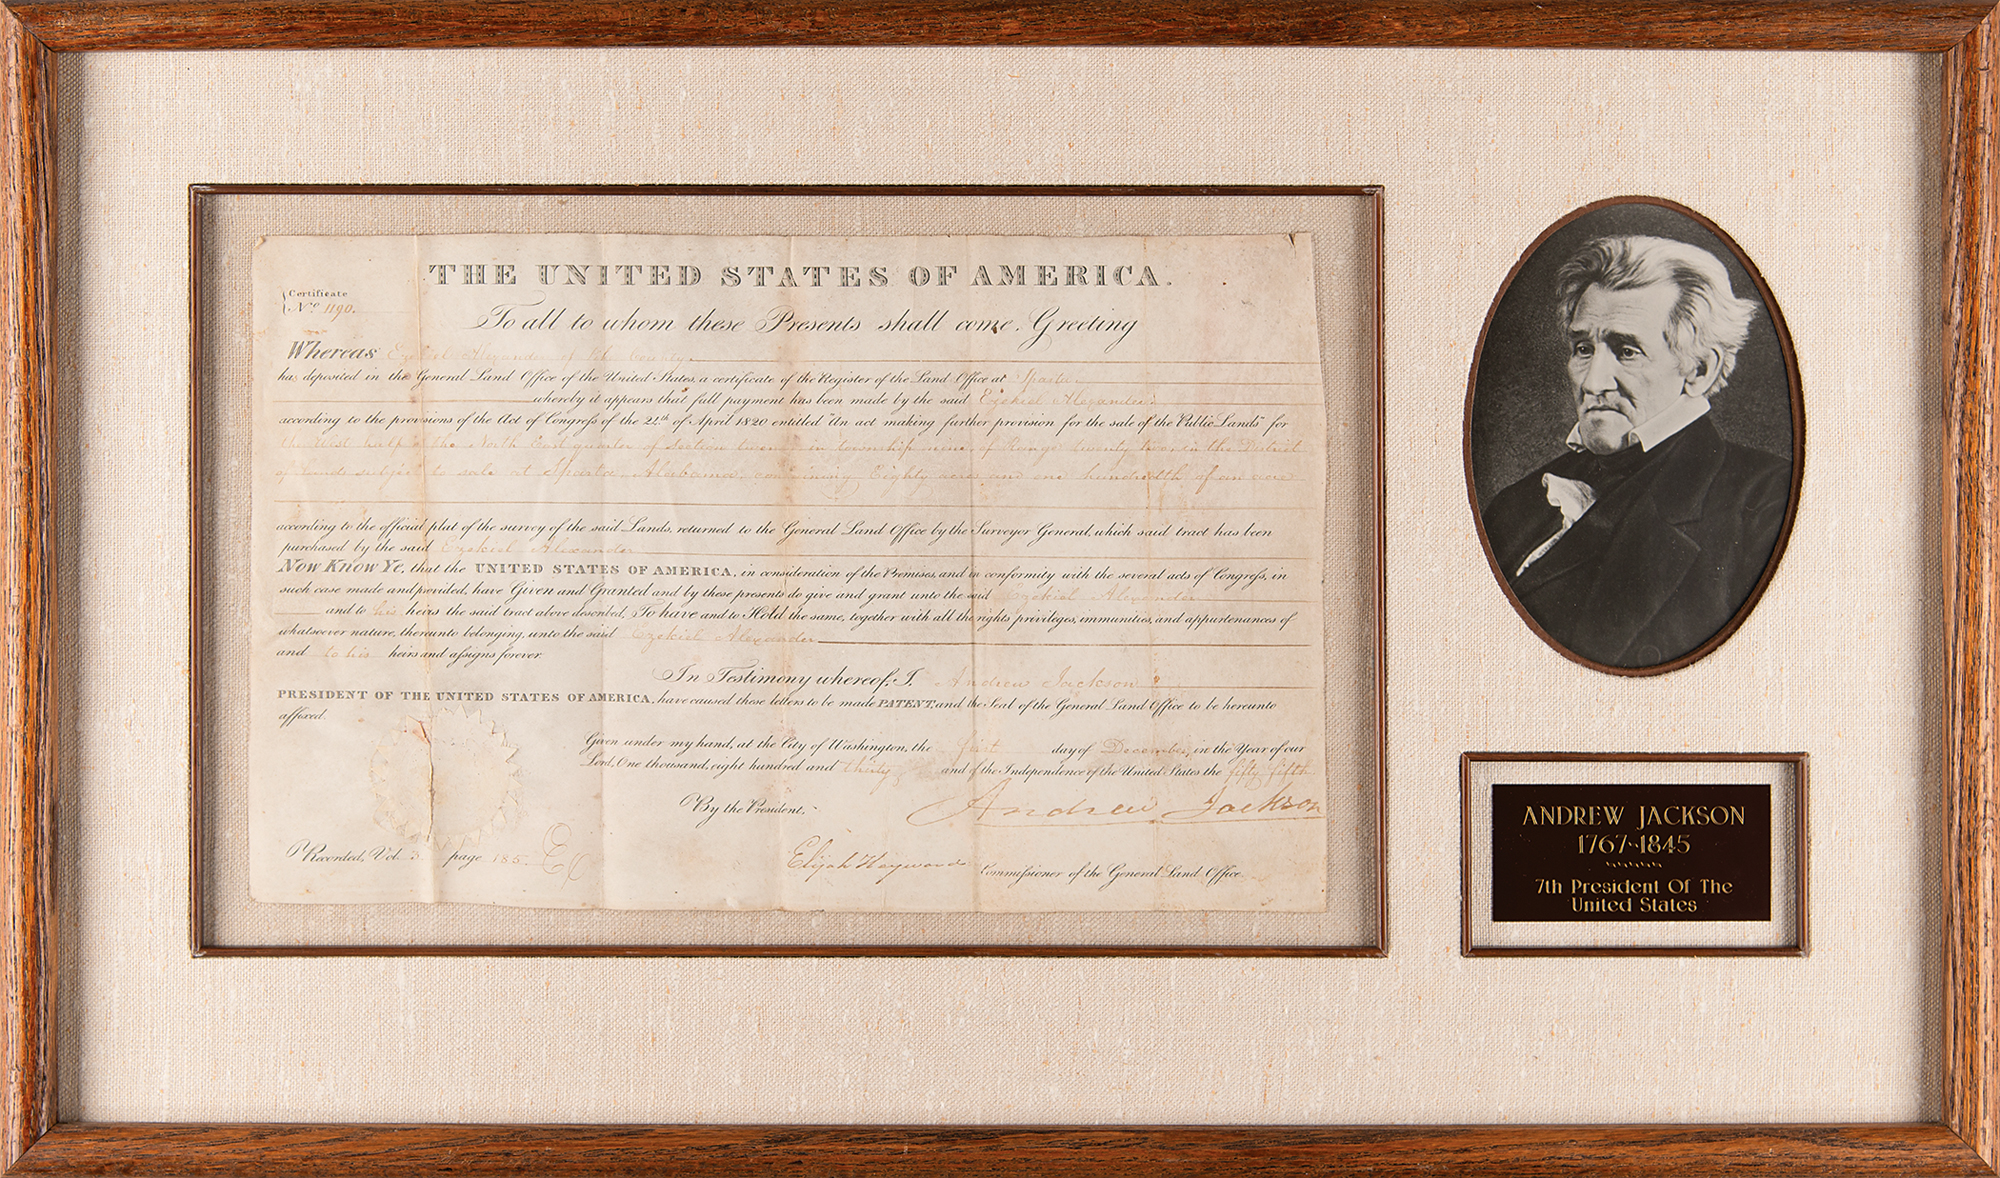 THE UNITED STATES OF AMERICA.
Certificate
No. 1190.
To all to whom these Presents shall come, Greeting
Whereas Ezekiel Alexander of County
has deposited in the General Land Office of the United States, a certificate of the Register of the Land Office at Sparta
whereby it appears that full payment has been made by the said Ezekiel Alexander
according to the provisions of the Act of Congress of the 24th of April 1820 entitled "An act making further provision for the sale of the Public Lands" for
the West half of the North East quarter of Section in township nine, of Range twenty two, in the District
of Lands subject to sale at Sparta Alabama, containing Eighty acres and one hundredth of an acre
according to the official plat of the survey of the said Lands, returned to the General Land Office by the Surveyor General, which said tract has been
purchased by the said Ezekiel Alexander
Now Know Ye, that the UNITED STATES OF AMERICA, in consideration of the Premises, and in conformity with the several acts of Congress, in
such case made and provided, have Given and Granted and by these presents do give and grant unto the said Ezekiel Alexander
and to his heirs the said tract above described, To have and to Hold the same, together with all the rights, privileges, immunities, and appurtenances of
whatsoever nature, thereunto belonging, unto the said Ezekiel Alexander
and to his heirs and assigns forever.
In Testimony whereof, I, Andrew Jackson
PRESIDENT OF THE UNITED STATES OF AMERICA, have caused these letters to be made PATENT, and the Seal of the General Land Office to be hereunto
affixed.
Given under my hand, at the City of Washington, the first day of December, in the Year of our
Lord, One thousand, eight hundred and thirty and of the Independence of the United States the fifty fifth
By the President,
Andrew Jackson
Elijah Hayward Commissioner of the General Land Office.
Recorded, Vol. 3. page 185.
ANDREW JACKSON
1767~1845
7th President Of The
United States